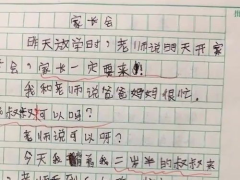 家长会
昨天放学时,老师说明天开家
长会,家长一定要来!
我和老师说爸爸妈妈很忙。
叔叔可以吗?
老师说可以吗?
今天我
二半的叔叔去